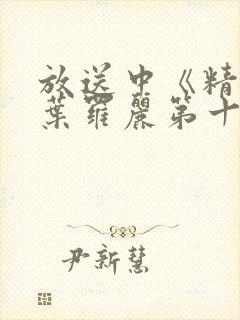 放送中《精
葉羅麗第十
尹新慧